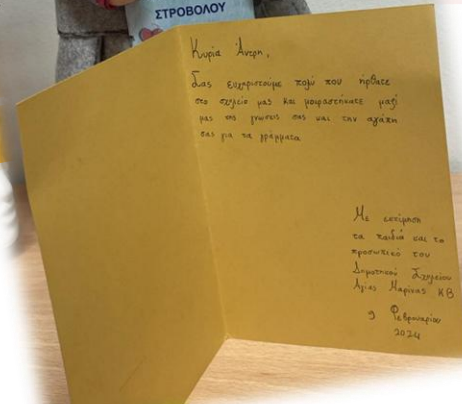 ΣΤΡΟΒΟΛΟΥ
Κυρία Άντρη,
Σας ευχαριστούμε πολύ που ήρθατε
στο σχολείο μας και μοιραστήκατε μαζί
μας της γνώσεις σας και την αγάπη
σας για τα γράμματα
Με εκτίμηση
τα παιδιά και το
προσωπικό του
Δημοτικού Σχολείου
Αγίας Μαρίνας ΚΒ
9 Φεβρουαρίου
2024